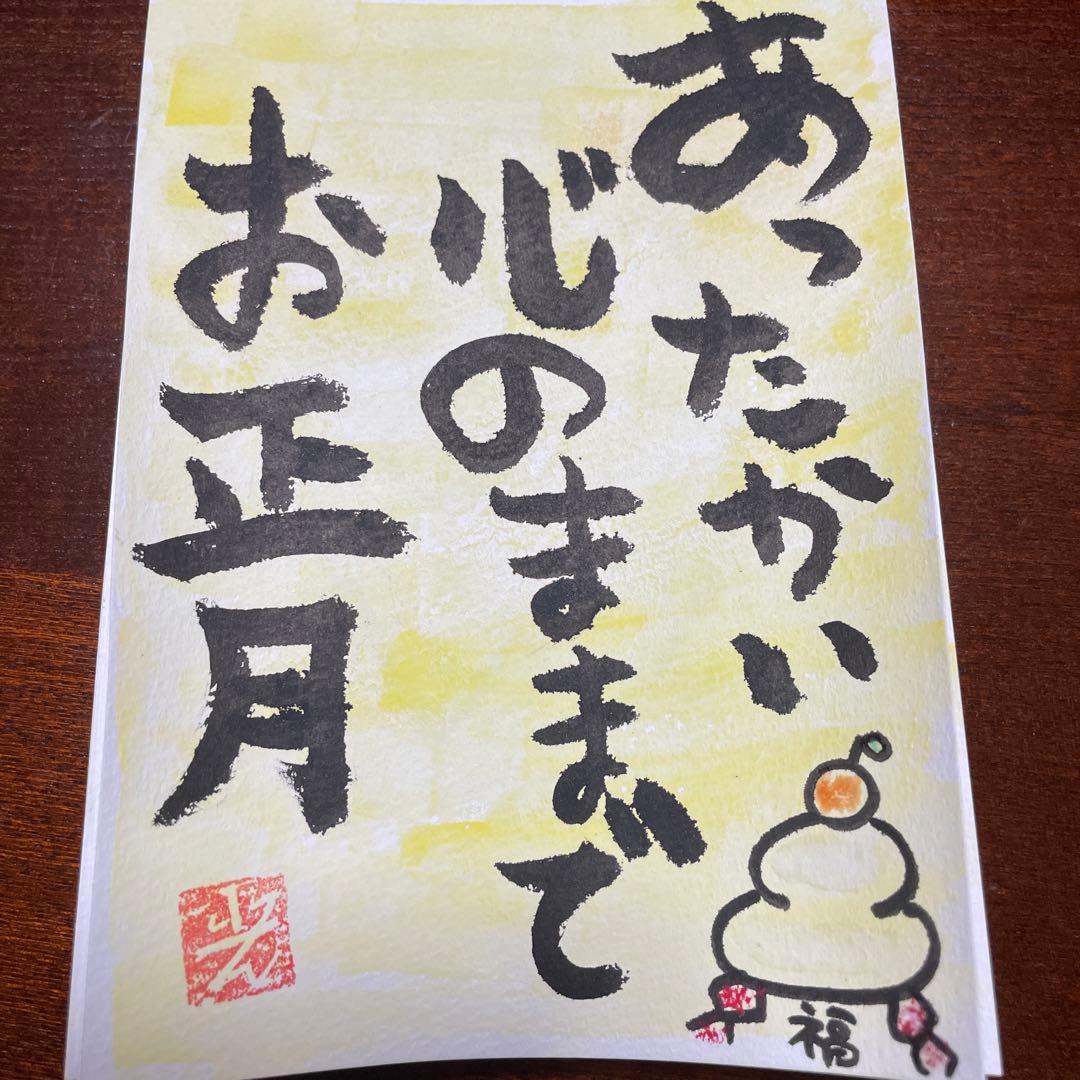 あったかい
心のままで
お正月
福